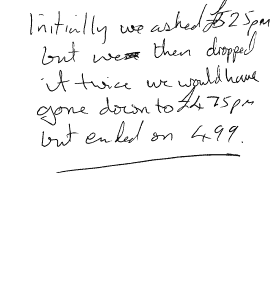 Initially we asked £525pm
but we then dropped
it twice we would have
gone down to £475pm
but ended on 499.